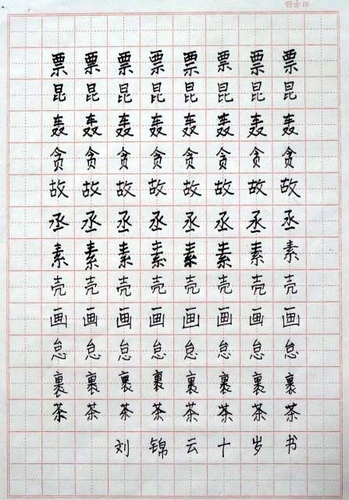 票票票票票票票票
昆昆昆昆昆昆昆昆
轰轰轰轰轰轰轰轰
贪贪贪贪贪贪贪贪
故故故故故故故故
丞丞丞丞丞丞丞丞
素素素素素素素素
壳壳壳壳壳壳壳壳
画画画画画画画画
怠怠怠怠怠怠怠怠
裹裹裹裹裹裹裹裹
茶茶茶茶茶茶茶茶
刘锦云十岁书